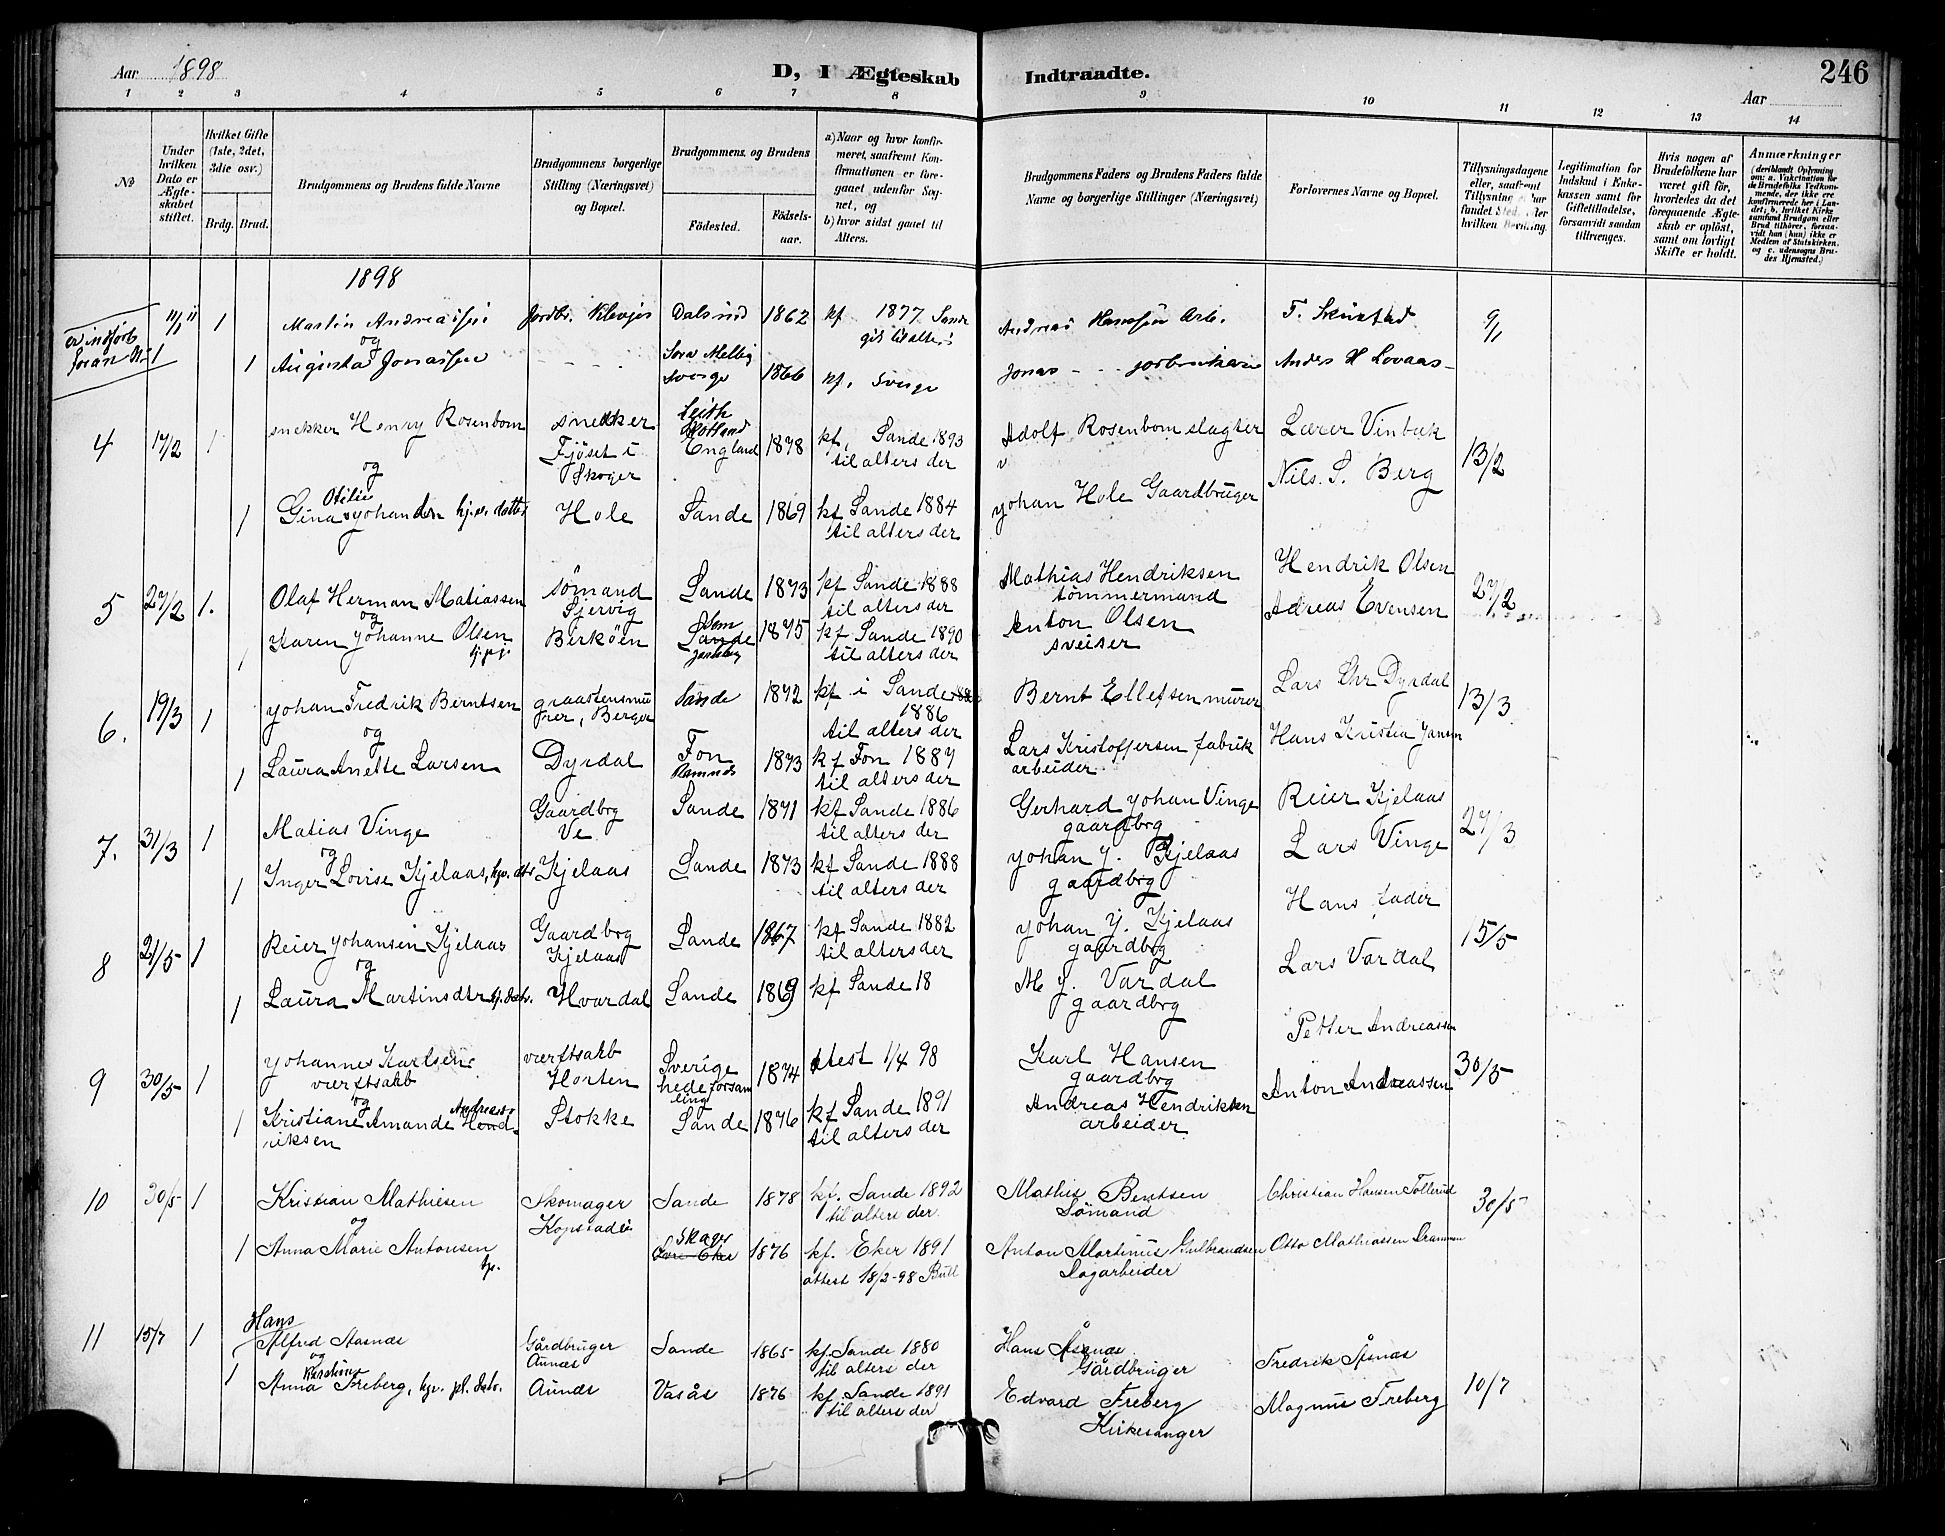 Aar 1898
D, I Ægteskab Indtraadte.
246
Aar
1 2 3 4 5 6 7 8 9 10 11 12 13 14
No
Under hvilken Dato er Ægteskabet stiftet.
Hvilket Gifte (1ste, 2det, 3die osv.)
Brdg. Brud.
Brudgommens og Brudens fulde Navne
Brudgommens borgerlige Stilling (Næringsvei) og Bopæl.
Brudgommens og Brudens
Fødested. Fødselsaar.
a) Naar og hvor konfirmeret, saafremt Konfirmationen er foregaaet udenfor Sognet, og
b) hvor sidst gaaet til Alters.
Brudgommens Faders og Brudens Faders fulde Navne og borgerlige Stillinger (Næringsvei)
Forlovernes Navne og Bopæl.
Tillysningsdagene eller, saafremt Tillysning ei har fundet Sted, efter hvilken
Legitimation for Indskud i Enkekassen samt for Giftetilladelse, forsaavidt saadan tiltrænges.
Hvis nogen af Brudefolkene har været gift før, hvorledes da det foregaaende Ægteskab er opløst, samt om lovligt Skifte er holdt.
Anmærkninger
(deriblandt Oplysning om: a. Vakcination for de Brudefolks Vedkommende, der ikke ere konfirmerede her i Landet; b. hvilket Kirkesamfund Brudgom eller Brud tilhører, forsaavidt han (hun) ikke er Medlem af Statskirken. og c. udensogns Brudes Hjemsted.)
1898
er indførb foran No 1
11/1 1 Martin Andreassen Jordbr. Klevjer 1862 kf 1877 Sande Andreas Hanssen Arb. 9/1
og gik til alters
1 Augusta Jonassen Sverge 1866 kf. Sverge Jonas jorbruker Anders H Lovaas
4 17/2 1 snekker Henry Rosenbom snekker Fjøset i Skoger Leith Skotland England 1878 kf. Sande 1893 til alters der Adolf Rosenbom slagter Lærer Vinbæk 13/2
og
1 Gina Otilie Johansen Hole Sande 1869 kf Sande 1884 til alters der Johan Hole Gaardbruger Nils. S. Berg
5 27/2 1. Olaf Herman Matiassen sømand Sjervig Sande 1873 kf Sande 1888 til alters der Mathias Hendriksen tømmermand Hendrik Olsen 27/2
og
1 Karen Johanne Olsen Birkøen Sande 1875 kf Sande 1890 til alters der Anton Olsen sveiser Adreas Evensen
6. 19/3 1 Johan Fredrik Berntsen graastensmurer, Berger Sande 1872 kf i Sande 1886 til alters der Bernt Ellefsen murer Lars Chr Dyrdal 13/3
og
1 Laura Anette Larsen Dyrdal Fon Ramnes 1873 kf Fon 1887 til alters der Lars Kristoffersen fabrik arbeider Hans Kristia Jansen
7. 31/3 1 Matias Vinge Gaardbrg Ve Sande 1871 kf Sande 1886 til alters der Gerhard Johan Vinge gaardbrg Reier Kjelaas 27/3
og
1 Inger Lovise Kjelaas, Kjelaas Sande 1873 kf Sande 1888 til alters der Johan J. Kjelaas gaardbrg Lars Vinge
8 21/5 1 Reier Johansen Kjelaas Gaardbrg Kjelaas Sande 1867 kf Sande 1882 til alters der Johan J. Kjelaas gaardbrg Hans fader 15/5
og
1 Laura Martinsdtr Hvardal Sande 1869 kf Sande 18 M J. Vardal gaardbrg Lars Vardal
9 30/5 1 Johannes Karlsen værftsakb værftsakb Horten Sverige hedeforsamling 1874 attest 1/4 98 Karl Hansen gaardbrg Petter Andreassen 30/5
og
1 Kristiane Amande Hendriksen Stokke Sande 1876 kf Sande 1891 til alters der Andreas Hendriksen arbeider Anton Andreassen
10 30/5 1 Kristian Mathisen Skomager Kopstad Sande 1878 kf. Sande 1892 til alters der. Mathis Bentsen Sømand Christian Hansen Tollerud 30/5
og
1 Anna Marie Antonsen Skoger Øvre Eker 1876 kf. Eker 1891 attest 18/2-98 Anton Martinus Gulbrandsen Dagarbeider Otto Mathiassen Drammen
11 15/7 1 Hans Alfred Aasnæs Gårdbruger Aunæs Sande 1865 kf. Sande 1880 til alters der Hans Åsnæs Gårdbruger Fredrik Åsnæs 10/7
og
1 Anna Freberg, Vasås 1876 kf. Sande 1891 til alters der Edvard Freberg Kirkesanger Magnus Freberg